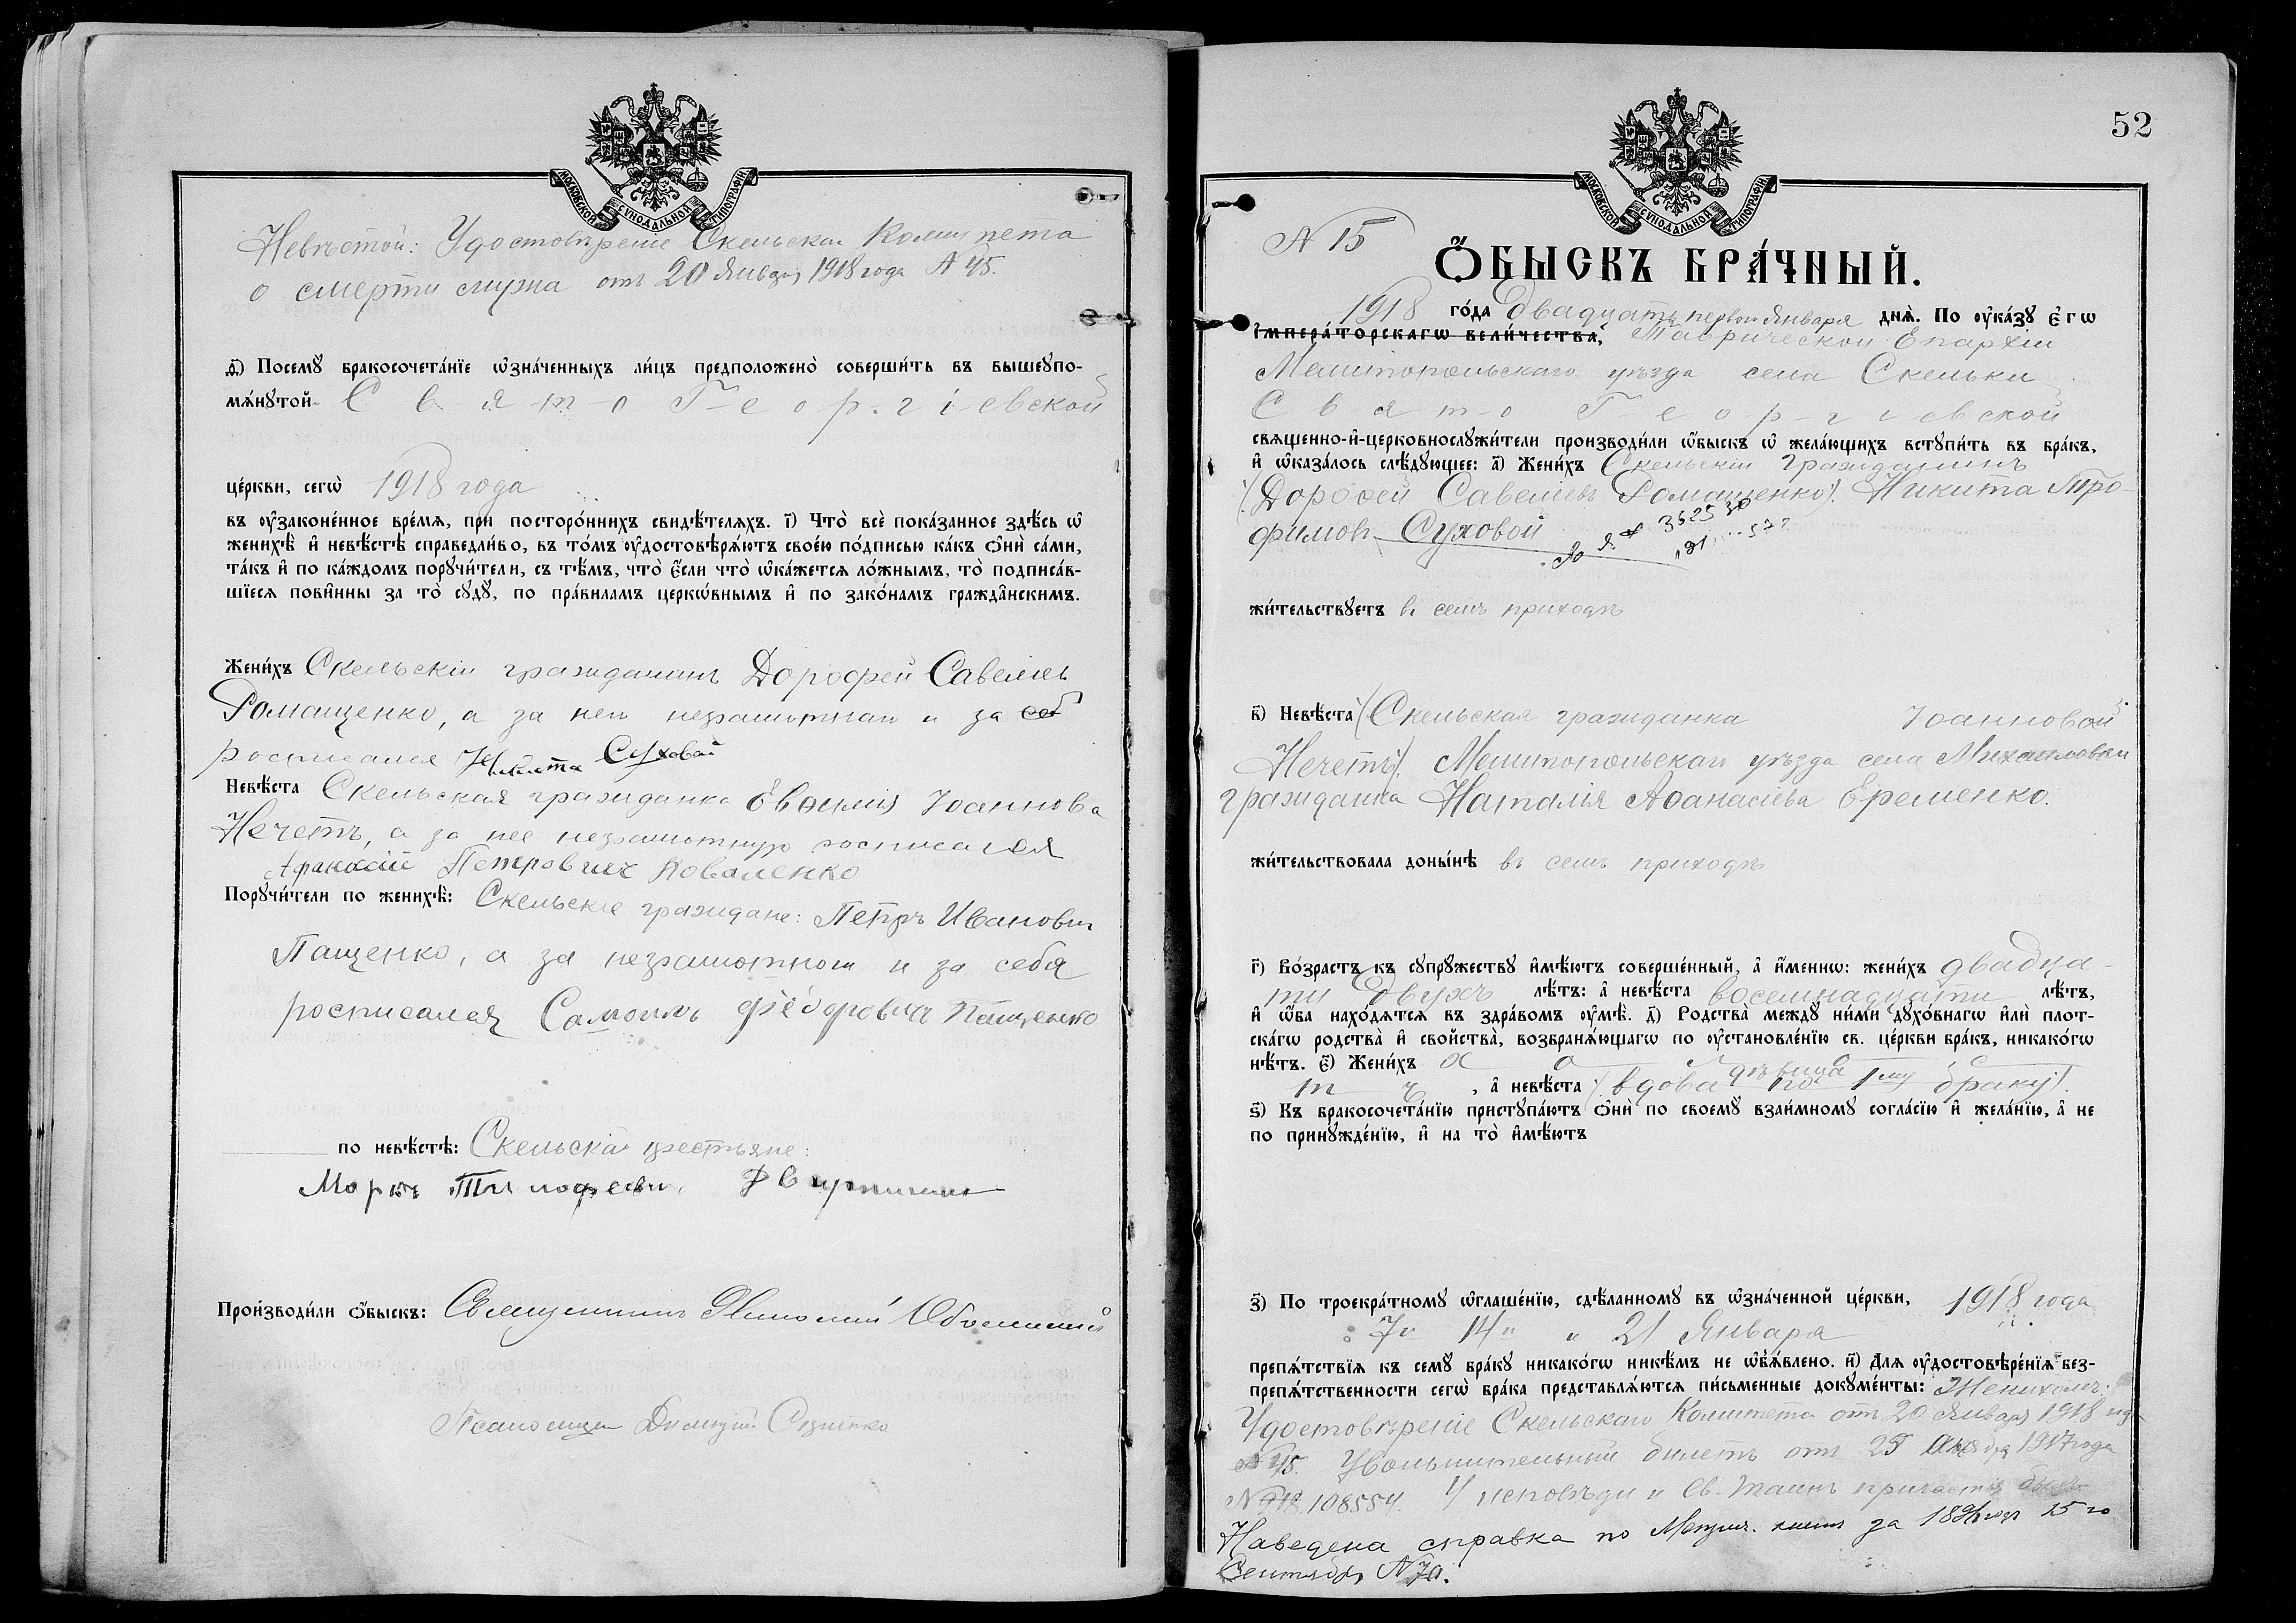 МОСКОВСКОЙ СѴНОДАЛЬНОЙ ТИПОГРАФІИ
Невѣстой: Удостовѣреніе Скельскаго Комитета
о смерти мужа отъ 20 Января 1918 года № 45.
Посемꙋ̀ бракосочета́нїе ѡ҆зна́ченныхъ ли́цъ предположено̀ соверши́ть въ вышеꙋпо-
мѧ́нꙋтой Свято Георгіевской
це́ркви, сегѡ̀ 1918 года
въ ᲂу҆законе́нное вре́мѧ, при посторо́ннихъ свидѣ́телѧхъ. і҃) Что̀ всѐ пока́занное здѣ́сь ѡ҆
женихѣ̀ и҆ невѣ́стѣ справедли́во, въ то́мъ ᲂу҆достовѣрѧ́ютъ свое́ю по́дписью ка́къ ѻ҆нѝ са́ми,
та́къ и҆ по ка́ждомъ порꙋчи́тели, съ тѣ́мъ, что̀ є҆́сли что̀ ѡ҆ка́жетсѧ ло́жнымъ, то̀ подписа́в-
шїесѧ пови́нны за то̀ сꙋдꙋ̀, по пра́виламъ церкѡ́внымъ и҆ по зако́намъ гражда́нскимъ.
Жени́хъ Скельскій гражданинъ Дорофей Савельевъ
Ромащенко, а за него неграмотнаго и за себ
росписался Никита Суховой
Невѣ́ста Скельская гражданка Евѳимія Іоаннова
Нечетъ, а за нее неграмотную росписался
Петровичъ Коваленко
Порꙋчи́тели по женихѣ̀: Скельскіе граждане: Петръ Ивановичъ
Пащенко, а за неграмотнаго и за себя
росписался Самоилъ Феодоровичъ Пащенко
по невѣ́стѣ: Скельскіе крестьяне:
Марко Тимофеевичъ
Произво́дили ѡ҆́быскъ: Священникъ
Псаломщикъ Димитрій
52
МОСКОВСКОЙ СѴНОДАЛЬНОЙ ТИПОГРАФІИ
N 15
Ѻ҆́БЫСКЪ БРА́ЧНЫЙ.
1918 го́да двадцать первый Января днѧ̀. По ᲂу҆ка́зꙋ є҆гѡ̀
і҆мпера́торскагѡ вели́чества, Таврической Епархіи
Мелитопольскаго уѣзда села Скельки
Свято Георгіевской
свѧщенно-и҆-церковнослꙋжи́тели производи́ли ѡ҆́быскъ ѡ҆ жела́ющихъ встꙋпи́ть въ бра́къ,
и҆ ѡ҆каза́лось слѣ́дꙋющее: а҃) Жени́хъ Скельскій гражданинъ
(Дорофей Савельевъ Ромащенко). Никита Тро-
фимовъ Суховой
жи́тельствꙋетъ въ семъ приходѣ
в҃) Невѣ́ста (Скельская гражданка Іоанновой
Нечетъ). Мелитопольскаго уѣзда села Михайловки
гражданка Наталія Аѳанасіева Еременко.
жи́тельствовала доны́нѣ въ семъ приходѣ
г҃) Во́зрастъ къ сꙋпрꙋ́жествꙋ и҆мѣ́ютъ соверше́нный, а҆ и҆́меннѡ: жени́хъ двадца-
ти двухъ лѣ́тъ: а҆ невѣ́ста восемнадцати лѣ́тъ,
и҆ ѡ҆́ба нахо́дѧтсѧ въ здра́вомъ ᲂу҆мѣ̀. д҃) Родства̀ междꙋ ни́ми дꙋхо́внагѡ и҆лѝ плот-
ска́гѡ родства̀ и҆ свойства̀, возбранѧ́ющагѡ по ᲂу҆становле́нїю св. це́ркви бра́къ, никако́гѡ
нѣ́тъ. є҃) Жени́хъ холост
ъ, а҆ невѣ́ста (вдова по 1му браку). дѣвица
ѕ҃) Къ бракосочета́нїю пристꙋпа́ютъ ѻ҆нѝ по своемꙋ̀ взаи́мномꙋ согла́сїю и҆ жела́нїю, а҆ не
по принꙋжде́нїю, и҆ на то̀ и҆мѣ́ютъ
з҃) По троекра́тномꙋ ѡ҆глаше́нїю, сдѣ́ланномꙋ въ ѡ҆зна́ченной це́ркви, 1918 года
7го 14 и 21 Января
препѧ́тствїѧ къ семꙋ̀ бра́кꙋ никако́гѡ никѣ́мъ не ѡ҆б̾ѧ́влено. и҃) Длѧ ᲂу҆достовѣре́нїѧ без-
препѧ́тственности сегѡ̀ бра́ка представлѧ́ютсѧ пи́сьменные докꙋме́нты: Женихомъ:
Удостовѣреніе Скельскаго Комитета отъ 20 Января 1918 года
№ 45. Увольнительный билетъ отъ 1917 года
108554. У исповѣди и Св. Таинъ причастія
Наведена справка по Метрич. книгѣ за 15 го
Сентября